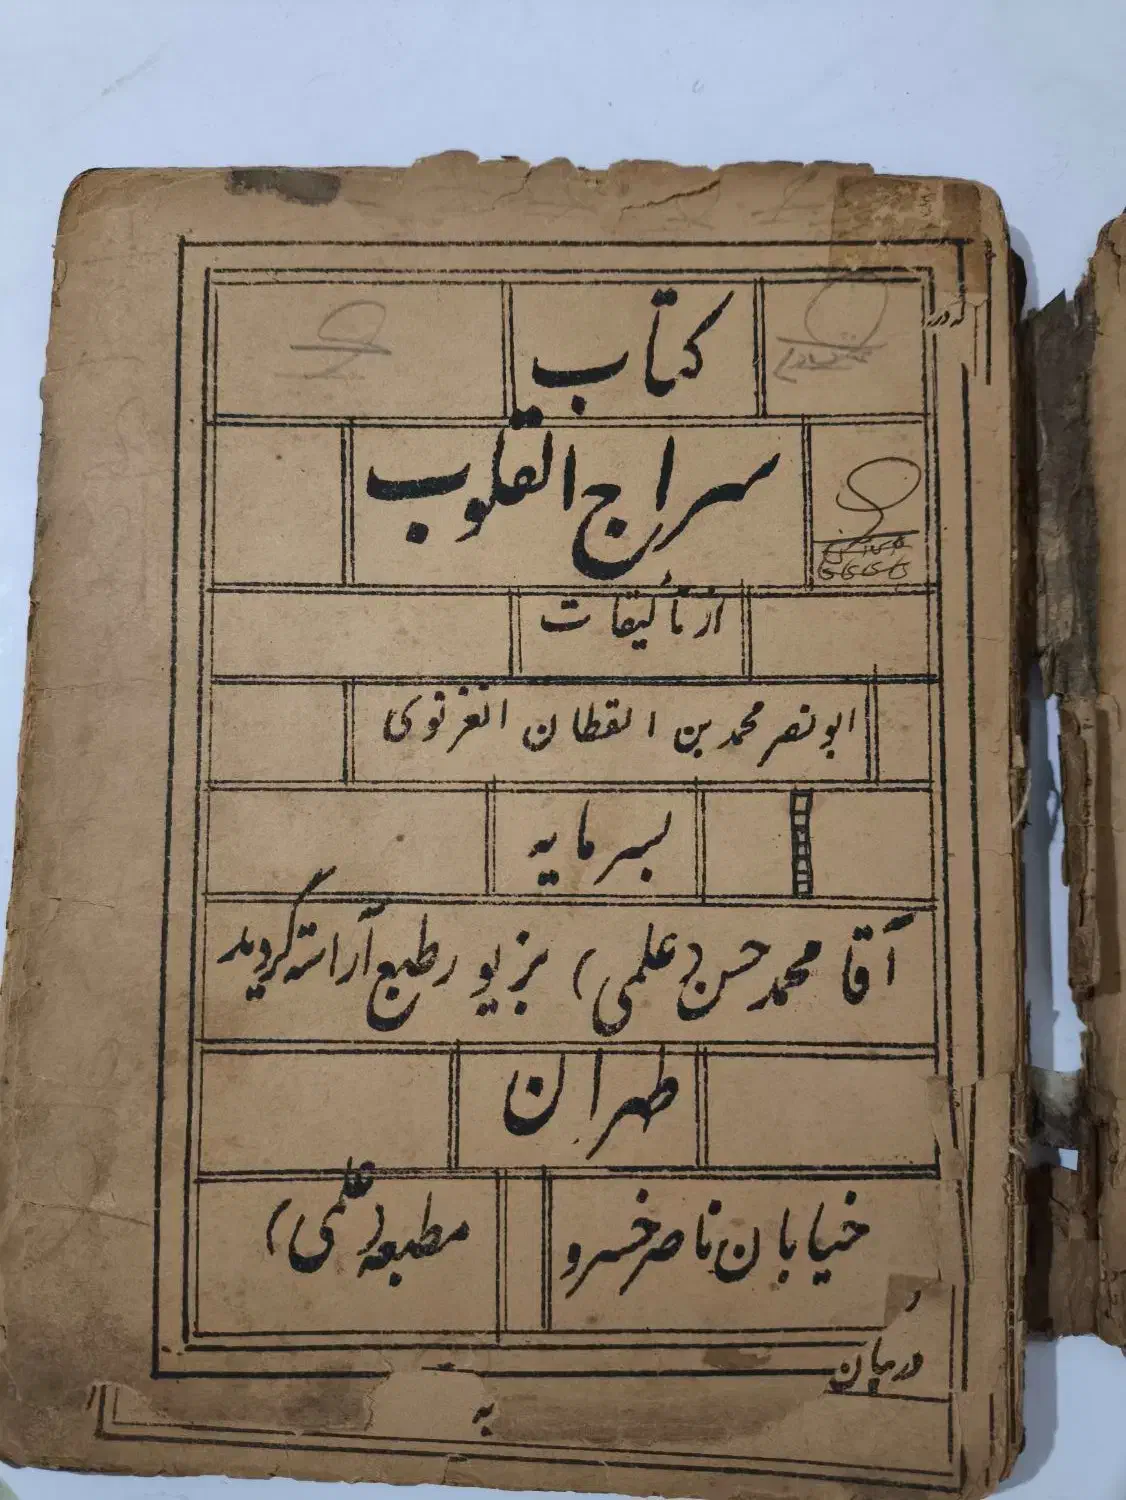 کتاب
سراج القلوب
از تألیفات
ابو نصر محمد بن القطان الغزنوی
بسرمایه
آقا محمد حسن (علمی) بزیور طبع آراسته گردید
طهران
خیابان ناصر خسرو مطبعه (علمی)
در بیان
به